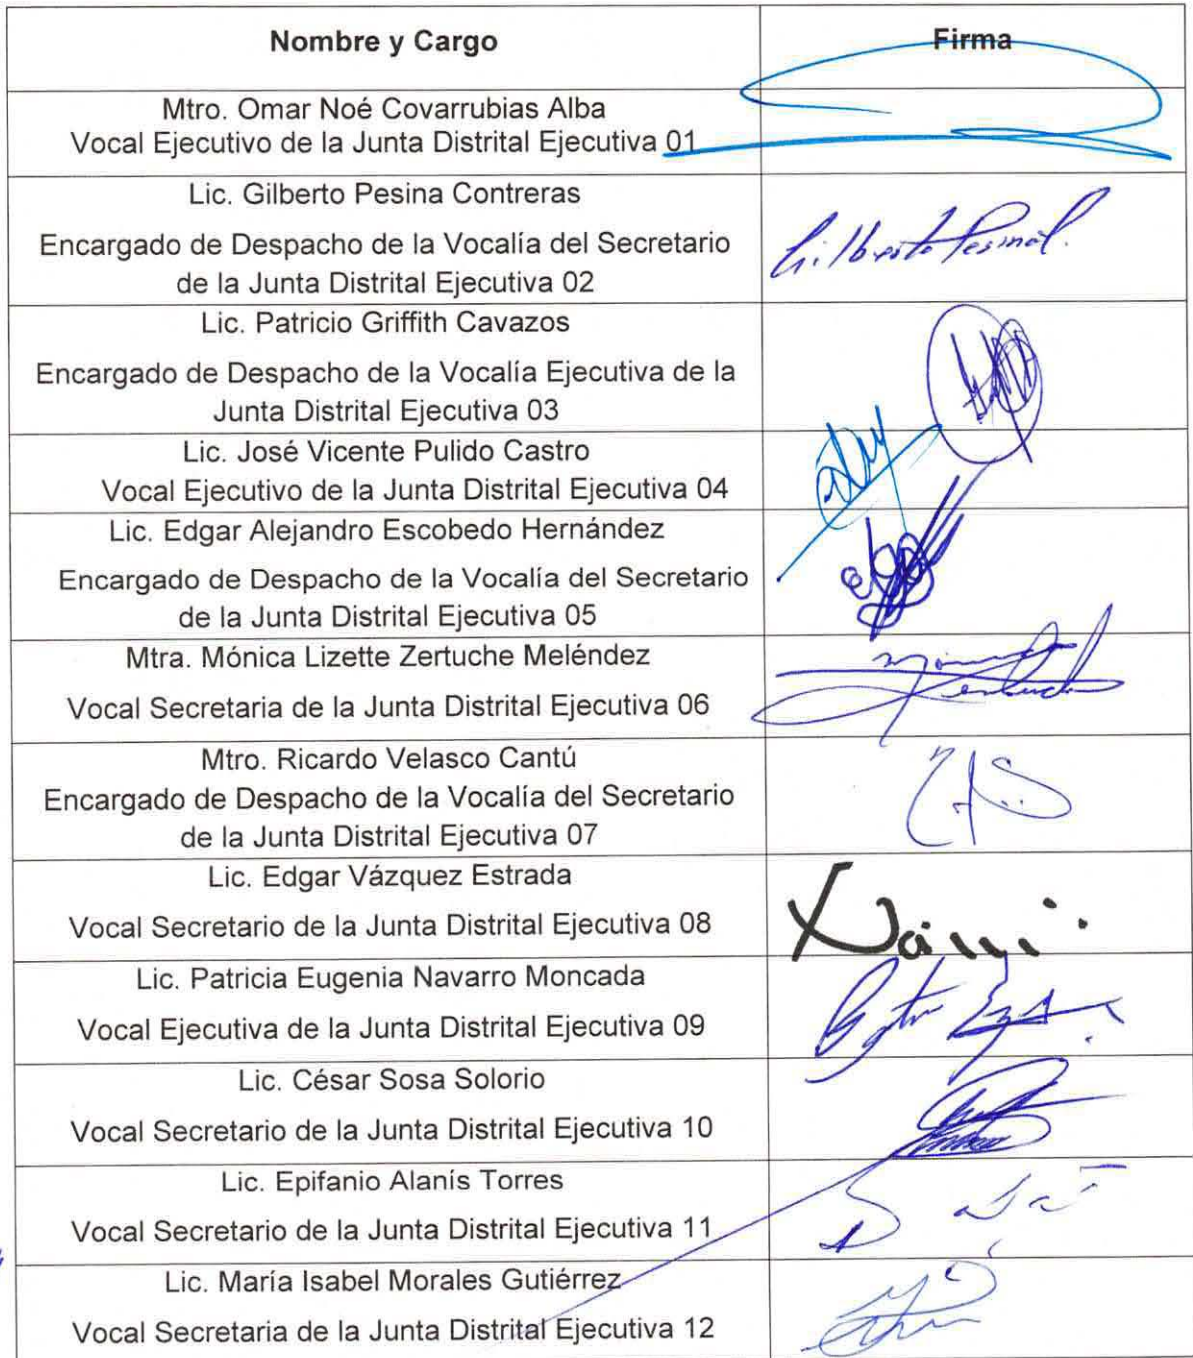 Nombre y Cargo
Firma
Mtro. Omar Noé Covarrubias Alba
Vocal Ejecutivo de la Junta Distrital Ejecutiva 01
Lic. Gilberto Pesina Contreras
Encargado de Despacho de la Vocalía del Secretario
de la Junta Distrital Ejecutiva 02
Lic. Patricio Griffith Cavazos
Encargado de Despacho de la Vocalía Ejecutiva de la
Junta Distrital Ejecutiva 03
Lic. José Vicente Pulido Castro
Vocal Ejecutivo de la Junta Distrital Ejecutiva 04
Lic. Edgar Alejandro Escobedo Hernández
Encargado de Despacho de la Vocalía del Secretario
de la Junta Distrital Ejecutiva 05
Mtra. Mónica Lizette Zertuche Meléndez
Vocal Secretaria de la Junta Distrital Ejecutiva 06
Mtro. Ricardo Velasco Cantú
Encargado de Despacho de la Vocalía del Secretario
de la Junta Distrital Ejecutiva 07
Lic. Edgar Vázquez Estrada
Vocal Secretario de la Junta Distrital Ejecutiva 08
Lic. Patricia Eugenia Navarro Moncada
Vocal Ejecutiva de la Junta Distrital Ejecutiva 09
Lic. César Sosa Solorio
Vocal Secretario de la Junta Distrital Ejecutiva 10
Lic. Epifanio Alanís Torres
Vocal Secretario de la Junta Distrital Ejecutiva 11
Lic. María Isabel Morales Gutiérrez
Vocal Secretaria de la Junta Distrital Ejecutiva 12